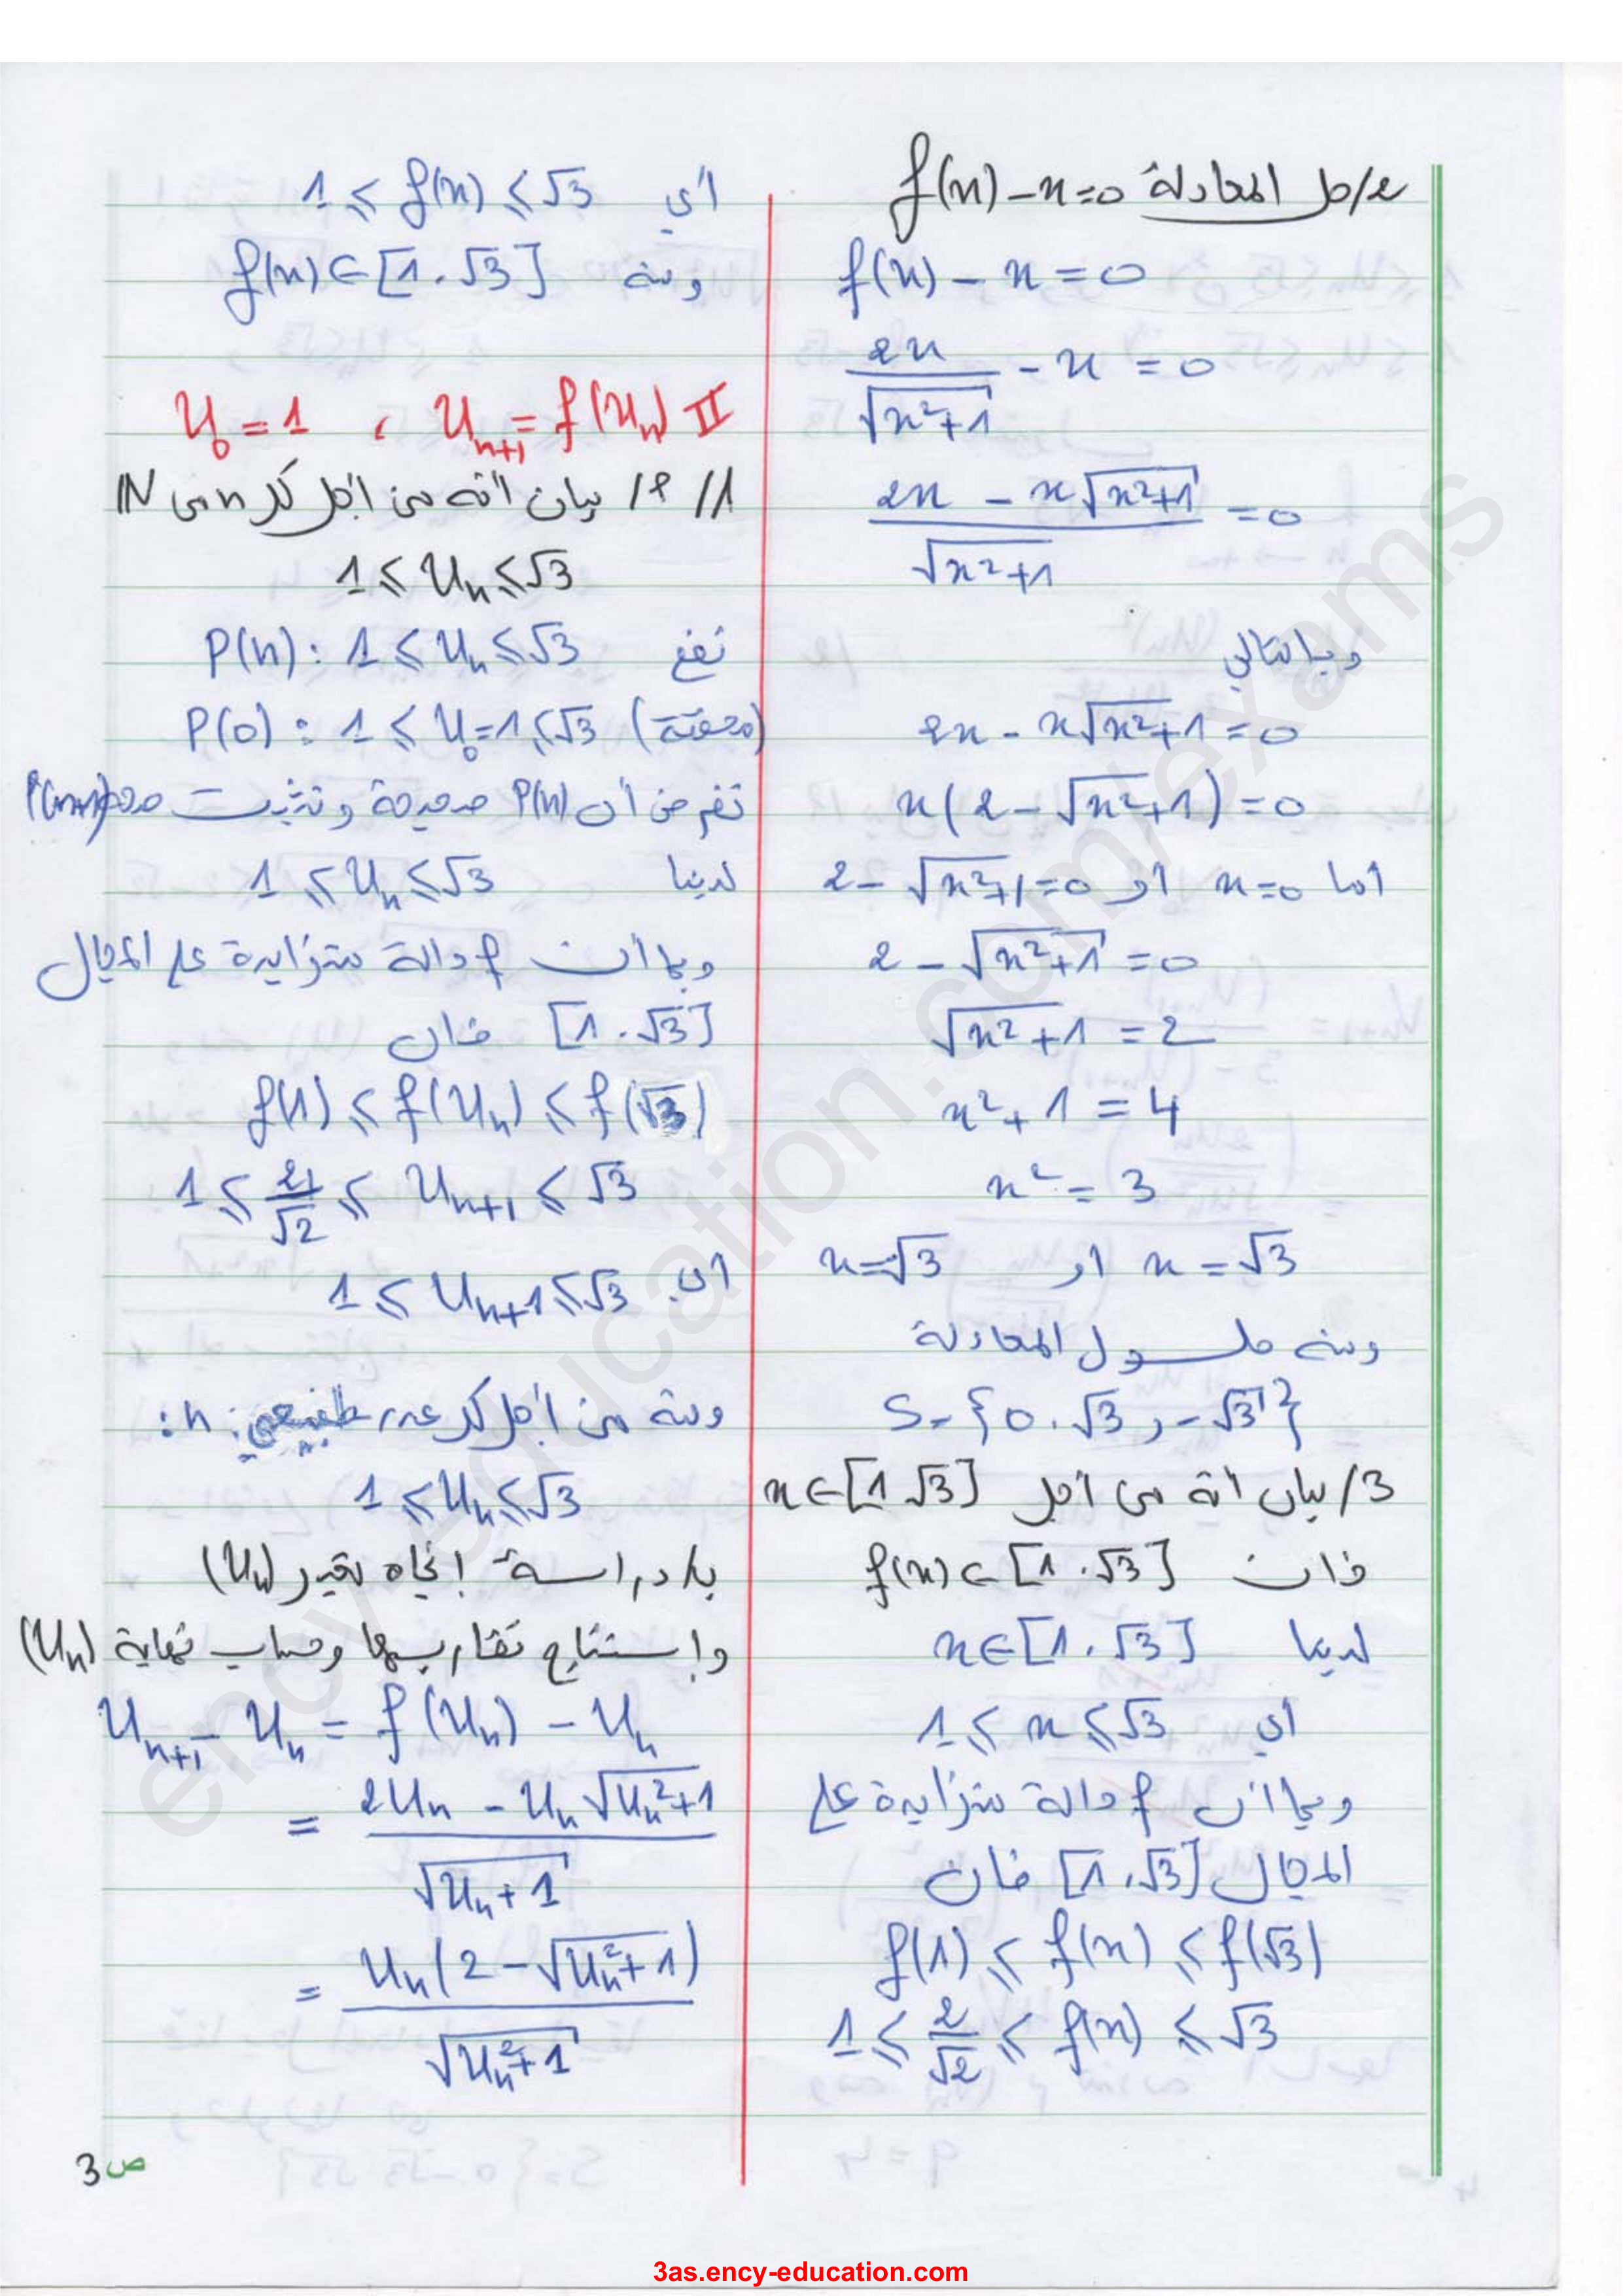 2/ حل المعادلة f(x)-x=0
f(x) - x = 0
2x/√(x²+1) - x = 0
(2x - x√(x²+1))/√(x²+1) = 0
وبالتالي
2x - x√(x²+1) = 0
x(2-√(x²+1)) = 0
اما x=0 او 2-√(x²+1)=0
2-√(x²+1) = 0
√(x²+1) = 2
x²+1 = 4
x² = 3
x=√3 او x=√3
ومنه حلول المعادلة
S={0.√3, -√3}
3/ بيان أنه من أجل x∈[1 √3]
فان f(x)∈[1.√3]
لدينا x∈[1.√3]
أي 1⩽x⩽√3
وبما أن f دالة متزايدة على
المجال [1.√3] فان
f(1)⩽f(x)⩽f(√3)
1⩽2/√2⩽f(x)⩽√3
أي 1⩽f(x)⩽√3
ومنه f(x)∈[1.√3]
II U₀=1 ، Uₙ₊₁=f(Uₙ)
1/ أ/ بيان أنه من أجل كل n من ℕ
1⩽Uₙ⩽√3
نضع P(n): 1⩽Uₙ⩽√3
P(0): 1⩽U₀=1⩽√3 (محققة)
نفرض أن P(n) صحيحة ونثبت صحة P(n+1)
لدينا 1⩽Uₙ⩽√3
وبما أن f دالة متزايدة على المجال
[1.√3] فان
f(1)⩽f(Uₙ)⩽f(√3)
1⩽2/√2⩽Uₙ₊₁⩽√3
أي 1⩽Uₙ₊₁⩽√3
ومنه من أجل كل عدد طبيعي n:
1⩽Uₙ⩽√3
ب/ دراسة اتجاه تغير (Uₙ)
واستنتاج تقاربها وحساب نهاية (Uₙ)
Uₙ₊₁ - Uₙ = f(Uₙ) - Uₙ
= (2Uₙ - Uₙ√(Uₙ²+1))/√(Uₙ+1)
= Uₙ(2-√(Uₙ²+1))/√(Uₙ²+1)
ص3
3as.ency-education.com
ency-education.com/exams